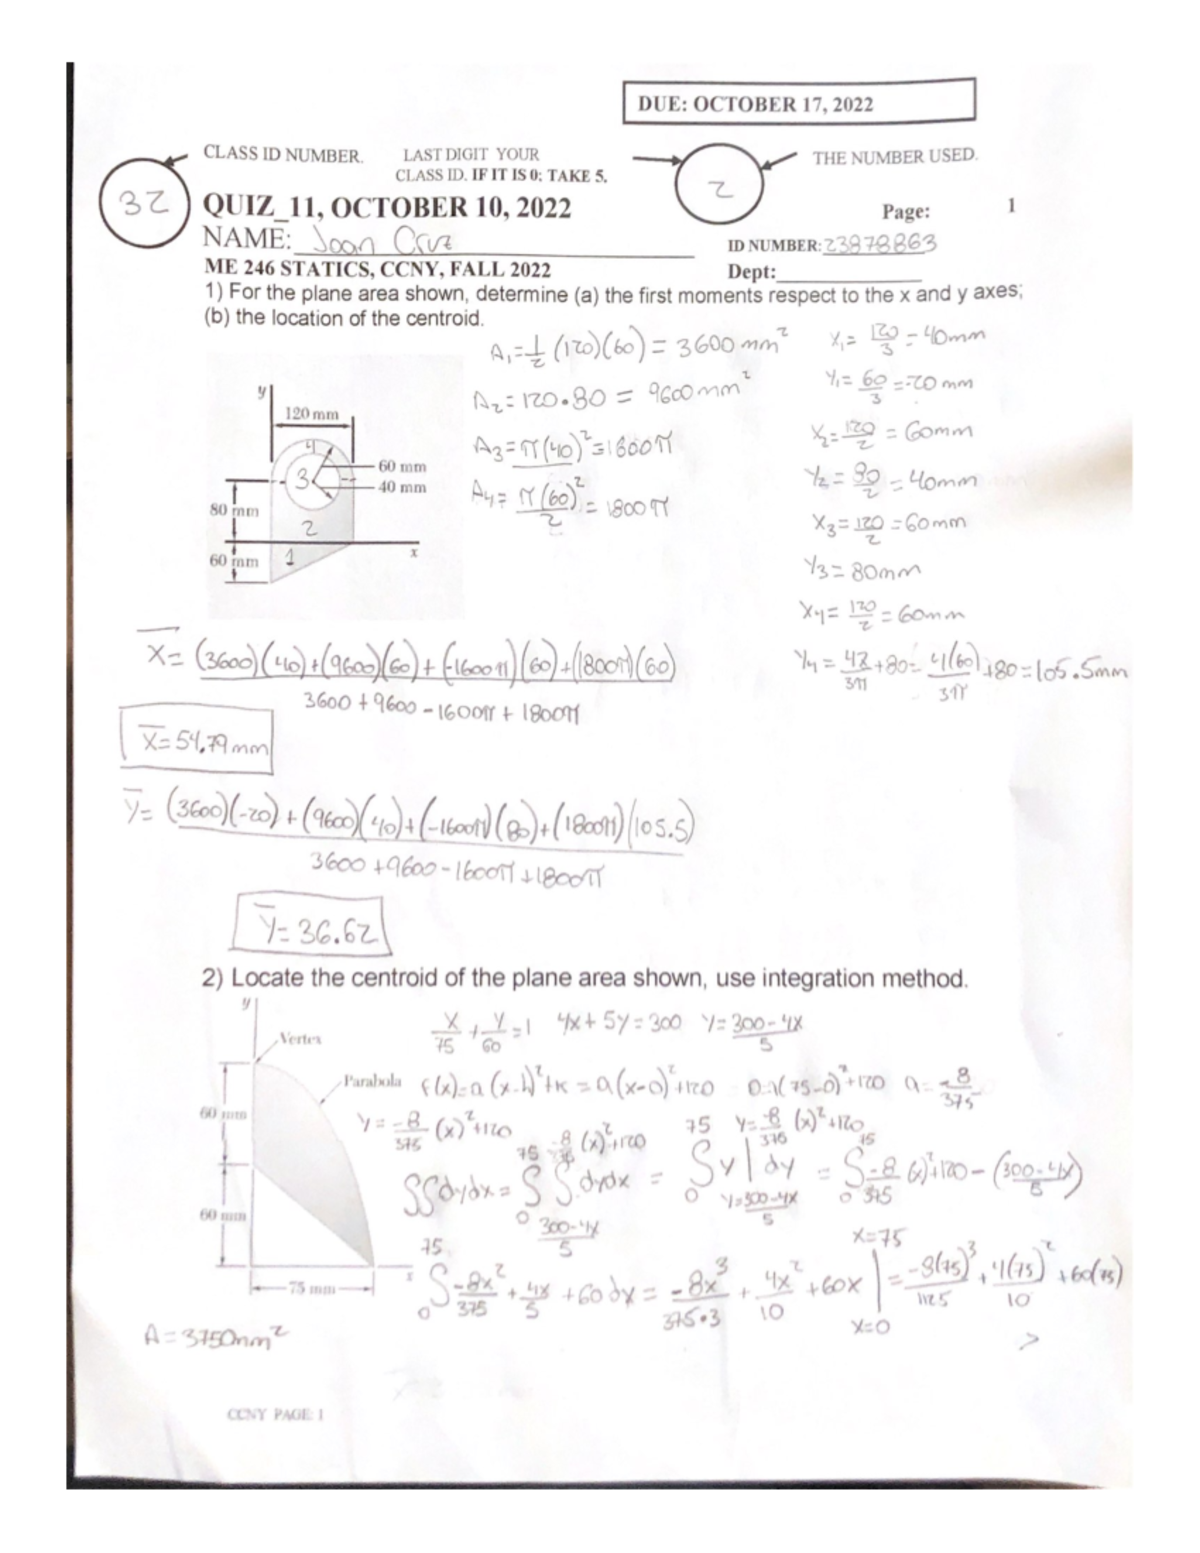 DUE: OCTOBER 17, 2022
CLASS ID NUMBER. LAST DIGIT YOUR THE NUMBER USED.
CLASS ID. IF IT IS 0; TAKE 5.
32 2
QUIZ_11, OCTOBER 10, 2022 Page: 1
NAME: Joan Cruz ID NUMBER: 23878863
ME 246 STATICS, CCNY, FALL 2022 Dept:
1) For the plane area shown, determine (a) the first moments respect to the x and y axes;
(b) the location of the centroid.
A₁=½ (120)(60) = 3600 mm² X₁= 120/3 = 40mm
A₂= 120•80 = 9600 mm² Y₁= 60/3 = -20 mm
A₃= π(40)² = 1600π X₂= 120/2 = 60mm
A₄= π(60)²/2 = 1800π Y₂= 80/2 = 40mm
X₃= 120/2 = 60mm
Y₃= 80mm
X₄= 120/2 = 60mm
Y₄= 4R/3π +80= 4(60)/3π +80 = 105.5mm
y
120 mm
4
60 mm
3
40 mm
80 mm
2
x
60 mm
1
X̅= (3600)(40)+(9600)(60)+(-1600π)(60)+(1800π)(60) / 3600+9600-1600π+1800π
X̅=54.79 mm
Y̅= (3600)(-20)+(9600)(40)+(-1600π)(80)+(1800π)(105.5) / 3600+9600-1600π+1800π
Y̅= 36.62
2) Locate the centroid of the plane area shown, use integration method.
y
Vertex
Parabola
60 mm
60 mm
x
75 mm
X/75 + Y/60 =1 4x+5y=300 Y= 300-4x/5
f(x)=a(x-h)²+k = a(x-0)²+120 0=a(75-0)²+120 a= -8/375
Y= -8/375 (x)²+120 Y= -8/375 (x)²+120
∫∫dydx = ∫₀⁷⁵ ∫ dydx = ∫₀⁷⁵ y| dy = ∫₀⁷⁵ -8/375 (x)²+120 - (300-4x/5)
∫₀⁷⁵ -8x²/375 + 4x/5 +60 dx = -8x³/375•3 + 4x²/10 +60x | x=75 x=0 = -8(75)³/1125 + 4(75)²/10 +60(75)
A = 3750mm²
CCNY PAGE: 1